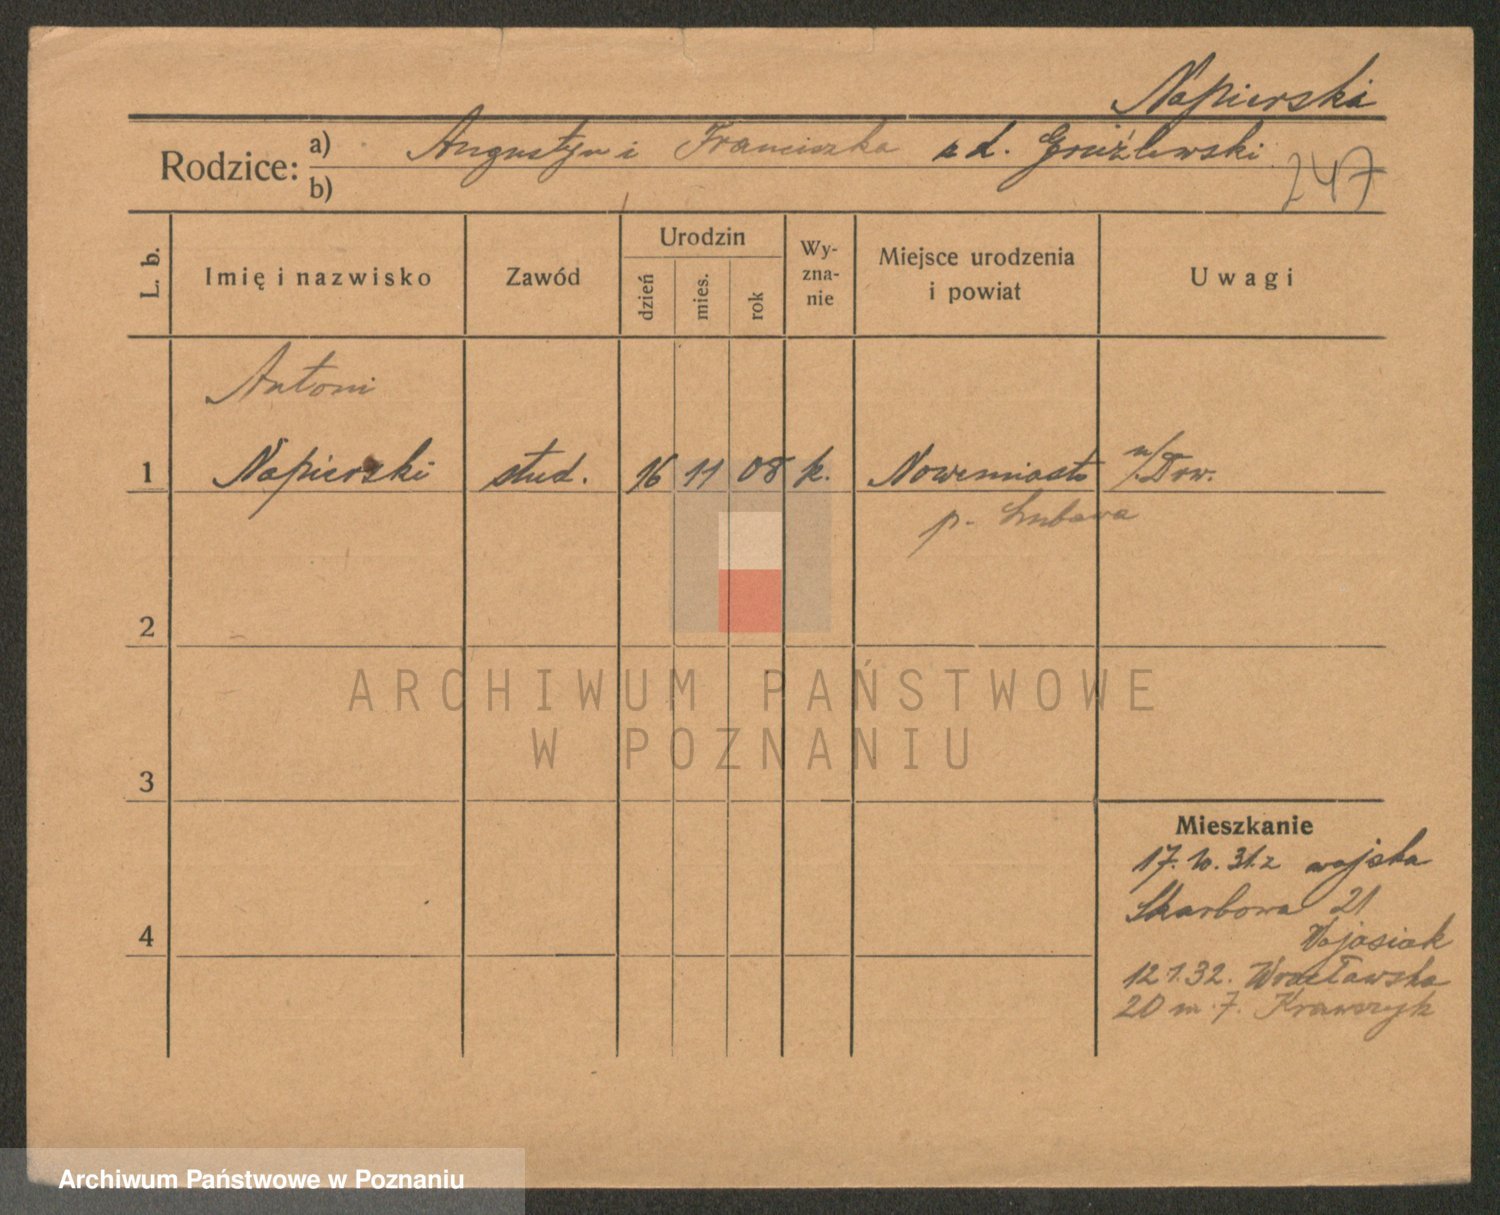 Napierski
Rodzice: a) Augustyn i Franciszka z d. Gruźlewski
b)
247
L. b.
Imię i nazwisko
Zawód
Urodzin
dzień
mies.
rok
Wy-
zna-
nie
Miejsce urodzenia
i powiat
Uwagi
Antoni
1 Napierski stud. 16 11 08 k. Nowemiasto n/Drw.
p. Lubawa
2
3
4
Mieszkanie
17.10.31. z wojska
Skarbowa 21
Wojasiak
12.1.32. Wrocławska
20 m. 7. Krawczyk
ARCHIWUM PAŃSTWOWE
W POZNANIU
Archiwum Państwowe w Poznaniu